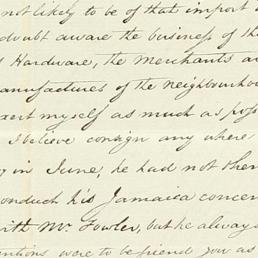 not likely to be of that import
doubt aware the business of the
Hardware, the Merchants
manufactures of the neighbourhoo
exert myself as much as poss
I believe consign any where
in June, he had not then
conduct his Jamaica concer
with Mr. Fowler, but he always
were to befriend you as